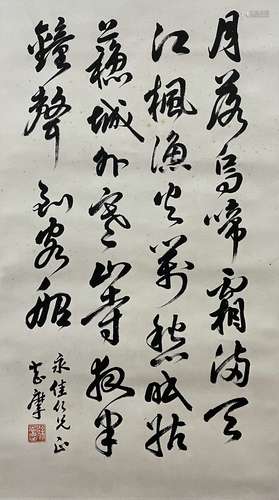 月落烏啼霜滿天
江楓漁火對愁眠姑
蘇城外寒山寺夜半
鐘聲到客船
永佳仁兄正
志摩